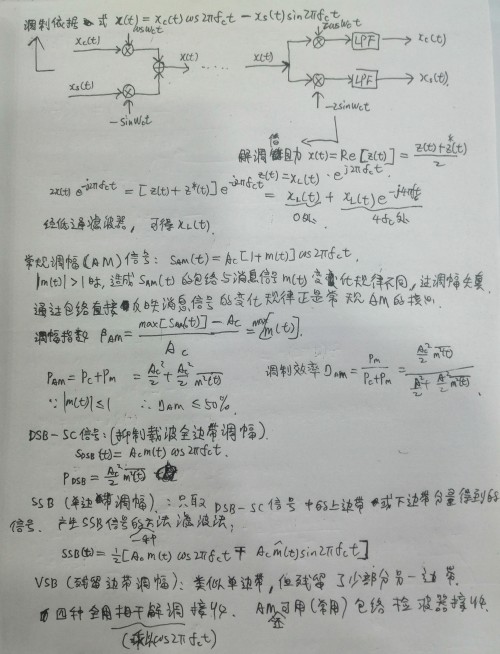 调制依据 式 x(t) = xc(t) cos2πfct − xs(t) sin2πfct
xc(t) cosωct x(t) …… x(t) 2cosωct LPF xc(t)
xs(t) −sinωct −2sinωct LPF xs(t)
解调 借助 x(t) = Re[z(t)] = (z(t)+z*(t))/2
z(t) = xL(t)·e^{j2πfct}
2x(t) e^{-j2πfct} = [z(t)+z*(t)] e^{-j2πfct} = xL(t) + xL*(t) e^{-j4πfct}
0处 4fc处
经低通滤波器, 可得 xL(t).
常规调幅(AM)信号: SAM(t) = Ac[1+m(t)] cos2πfct.
|m(t)|>1时, 造成SAM(t)的包络与消息信号m(t)变化规律不同, 过调幅失真
通过包络直接反映消息信号的变化规律正是常规AM的核心.
调幅指数 βAM = (max[SAM(t)] − Ac)/Ac = max[m(t)].
PAM = Pc + Pm = Ac²/2 + Ac²/2 m²(t) 调制效率 DAM = Pm/(Pc+Pm) = (Ac²/2 m²(t))/(Ac²/2 + Ac²/2 m²(t))
∵ |m(t)| ≤ 1 ∴ DAM ≤ 50%.
DSB-SC信号: (抑制载波全边带调幅).
SDSB(t) = Ac m(t) cos2πfct.
PDSB = Ac²/2 m²(t)
SSB(单边带调幅): 只取DSB-SC信号中的上边带或下边带分量得到的
信号. 产生SSB信号的方法 滤波法,
一种
SSB(t) = ½[Ac m(t) cos2πfct ∓ Ac m̂(t) sin2πfct]
VSB(残留边带调幅): 类似单边带, 但残留了小部分另一边带.
四种全用相干解调接收. AM还可用(常用)包络检波器接收.
(乘以cos2πfct)